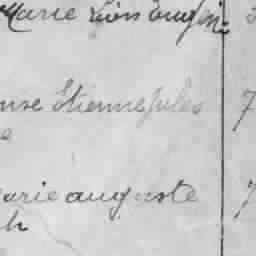 Marie Léon Eugèn
nse Etienne Jules 7
e
arie auguste 7
h